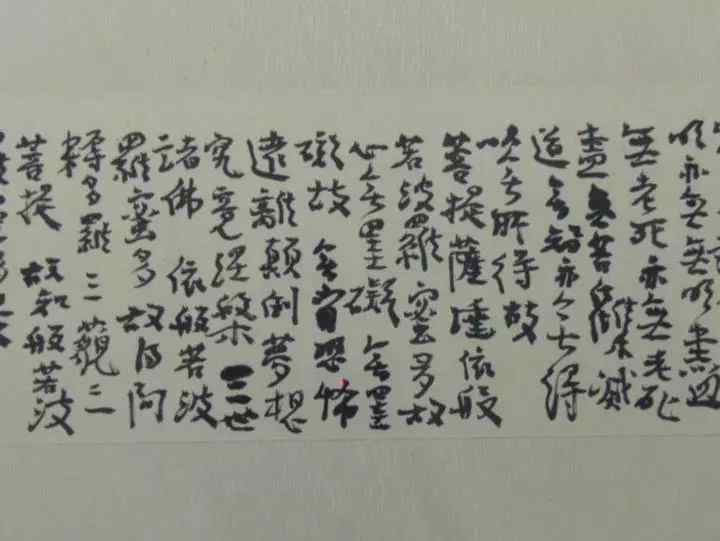 明亦無無明盡
無老死亦無老死
盡無苦集滅
道無智亦無得
以無所得故
菩提薩埵依般
若波羅蜜多故
心無罣礙無罣
礙故無有恐怖
遠離顛倒夢想
究竟涅槃三世
諸佛依般若波
羅蜜多故得阿
耨多羅三藐三
菩提故知般若波